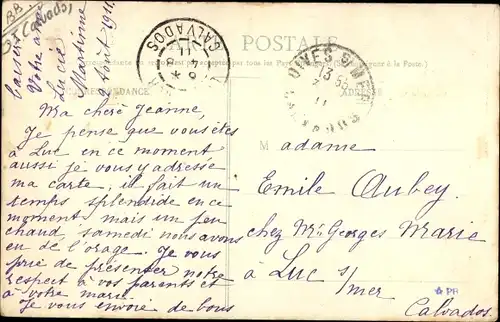 BB
(Calvados)
baisers
Votre amie
Lucie
Martinne
9 Août 1911
CALVADOS
CARTE POSTALE
DIVES S/MER
CALVADOS
CORRESPONDANCE
ADRESSE
Ma chère Jeanne,
Je pense que vous êtes
à Luc en ce moment
aussi je vous y adresse
ma carte, il fait un
temps splendide en ce
moment mais un peu
chaud, samedi nous avons
eu de l'orage. Je vous
prie de présenter notre
respect à vos parents et
à votre mari.
Je vous envoie de bons
Madame
Emile Aubey
chez Mr Georges Marie
à Luc s/
mer
Calvados.
PR